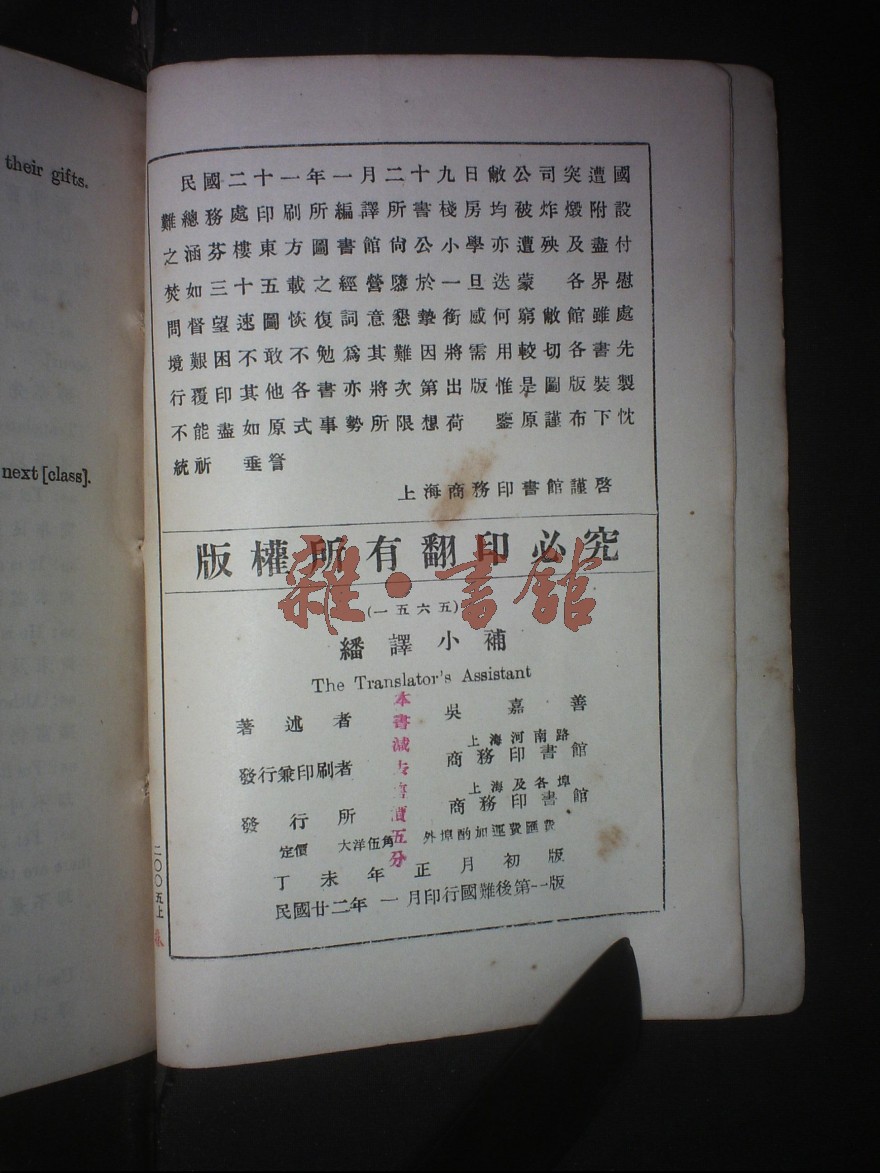 their gifts.
next [class].
民國二十一年一月二十九日敝公司突遭國
難總務處印刷所編譯所書棧房均被炸燬附設
之涵芬樓東方圖書館尙公小學亦遭殃及盡付
焚如三十五載之經營隳於一旦迭蒙 各界慰
問督望速圖恢復詞意懇摯銜感何窮敝館雖處
境艱困不敢不勉爲其難因將需用較切各書先
行覆印其他各書亦將次第出版惟是圖版裝製
不能盡如原式事勢所限想荷 鑒原謹布下忱
統祈 垂詧
上海商務印書館謹啓
版權所有翻印必究
雜·書館
(一五六五)
繙譯小補
The Translator's Assistant
著述者 吳嘉善
上海河南路
發行兼印刷者 商務印書館
上海及各埠
發行所 商務印書館
定價 大洋伍角 外埠酌加運費匯費
丁未年正月初版
民國廿二年一月印行國難後第一版
本書減去
價五分
二〇〇五上